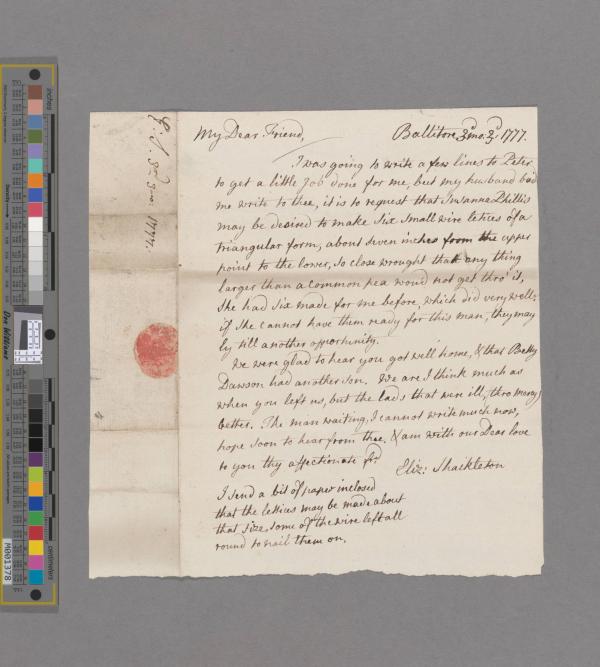 My Dear Friend,
Ballitore 3d mo: 3d, 1777.
I was going to write a few lines to Peter
to get a little Job done for me, but my husband bid
me write to thee, it is to request that Susanna Phillis
may be desired to make Six small wire letices of a
triangular form, about seven inches from the upper
point to the lower, so close wrought that any thing
larger than a common pea woud not get thro' it,
She had six made for me before, which did very well;
if she cannot have them ready for this man, they may
ly till another opportunity.
We were glad to hear you got well home, & that Betty
Dawson had another son. We are I think much as
when you left us, but the lads that were ill, thro mercy
better. The man waiting, I cannot write much now,
hope soon to hear from thee. & am with our Dear love
to you thy affectionate fd.
Eliz: Shackleton
I send a bit of paper inclosed
that the lettices may be made about
that size, some of the wire left all
round to nail them on.
E. S. 3rd 3mo 1777.
inches
centimeters
Don Williams
M001378